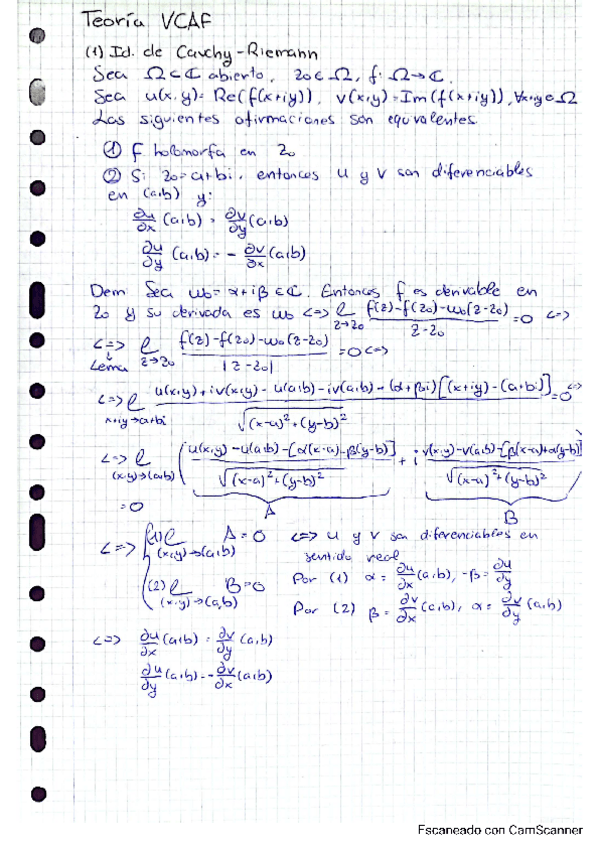 Teoría VCAF
(1) Id. de Cauchy-Riemann
Sea Ω⊂ℂ abierto, z0∈Ω, f: Ω→ℂ.
Sea u(x,y)=Re(f(x+iy)), v(x,y)=Im(f(x+iy)), ∀x+iy∈Ω
Las siguientes afirmaciones son equivalentes.
① f holomorfa en z0
② Si z0=a+bi, entonces u y v son diferenciables
en (a,b) y:
∂u/∂x (a,b) = ∂v/∂y (a,b)
∂u/∂y (a,b) = - ∂v/∂x (a,b)
Dem: Sea w0=α+iβ∈ℂ. Entonces f es derivable en
z0 y su derivada es w0 <=> ℓ z→z0 (f(z)-f(z0)-w0(z-z0))/(z-z0) =0 <=>
<=> Lema ℓ z→z0 (f(z)-f(z0)-w0(z-z0))/|z-z0| =0 <=>
<=> ℓ x+iy→a+bi (u(x,y)+iv(x,y)-u(a,b)-iv(a,b)-(α+βi)[(x+iy)-(a+bi)])/√((x-a)²+(y-b)²) =0 <=>
<=> ℓ (x,y)→(a,b) ( (u(x,y)-u(a,b)-[α(x-a)-β(y-b)])/√((x-a)²+(y-b)²) + i (v(x,y)-v(a,b)-[β(x-a)+α(y-b)])/√((x-a)²+(y-b)²) )
=0 A B
<=> { (1) ℓ (x,y)→(a,b) A=0 <=> u y v son diferenciables en
sentido real
(2) ℓ (x,y)→(a,b) B=0 Por (1) α = ∂u/∂x (a,b), -β = ∂u/∂y
Por (2) β = ∂v/∂x (a,b), α = ∂v/∂y (a,b)
<=> ∂u/∂x (a,b) = ∂v/∂y (a,b)
∂u/∂y (a,b) = - ∂v/∂x (a,b)
Escaneado con CamScanner